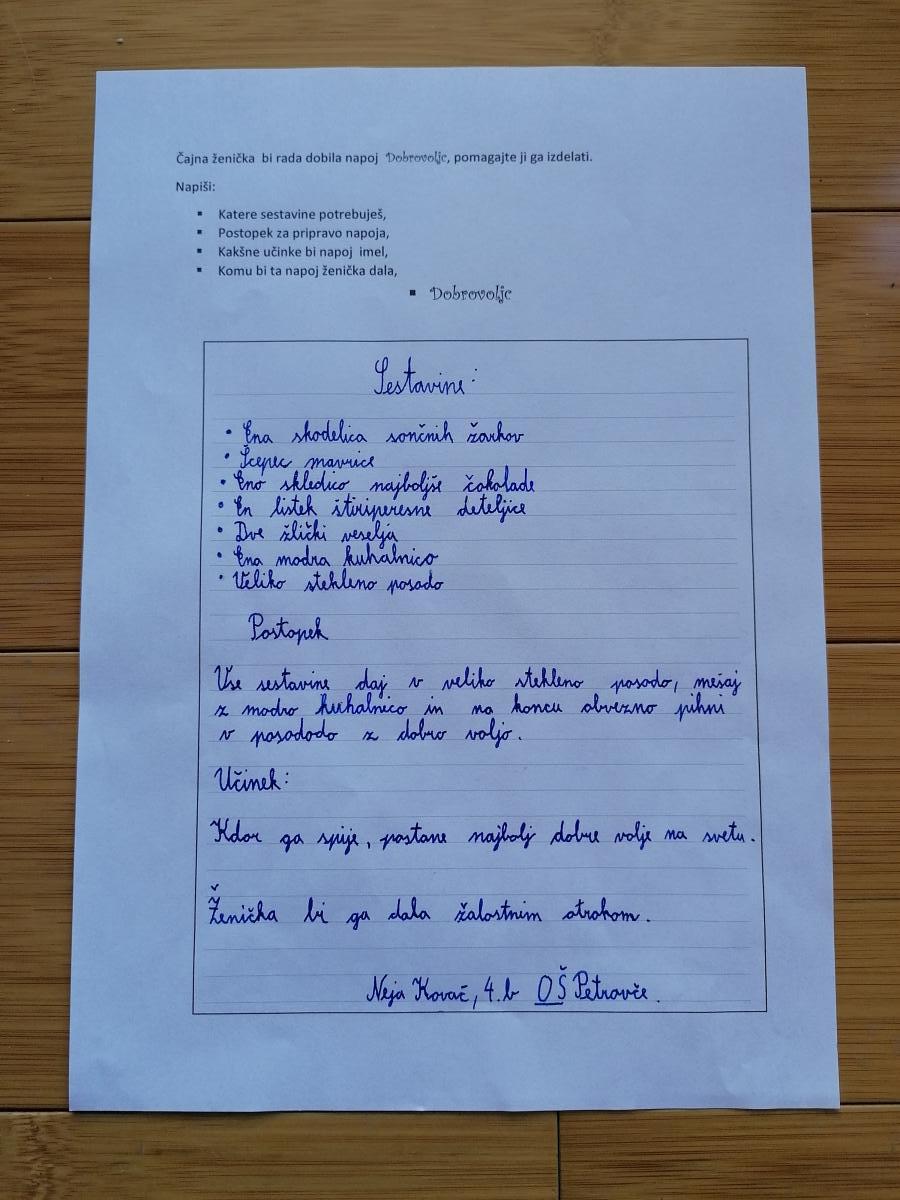 Čajna ženička bi rada dobila napoj Dobrovoljc, pomagajte ji ga izdelati.
Napiši:
▪ Katere sestavine potrebuješ,
▪ Postopek za pripravo napoja,
▪ Kakšne učinke bi napoj imel,
▪ Komu bi ta napoj ženička dala,
▪ Dobrovoljc
Sestavine:
• Ena skodelica sončnih žarkov
• Ščepec mavrice
• Eno skledico najboljše čokolade
• En listek štiriperesne deteljice
• Dve žlički veselja
• Ena modra kuhalnico
• Veliko stekleno posado
Postopek
Vse sestavine daj v veliko stekleno posado, mešaj
z modro kuhalnico in na koncu obvezno pihni
v posadodo z dobro voljo.
Učinek:
Kdor ga spije, postane najbolj dobre volje na svetu.
Ženička bi ga dala žalostnim otrokom.
Neja Kovač, 4.b OŠ Petrovče.